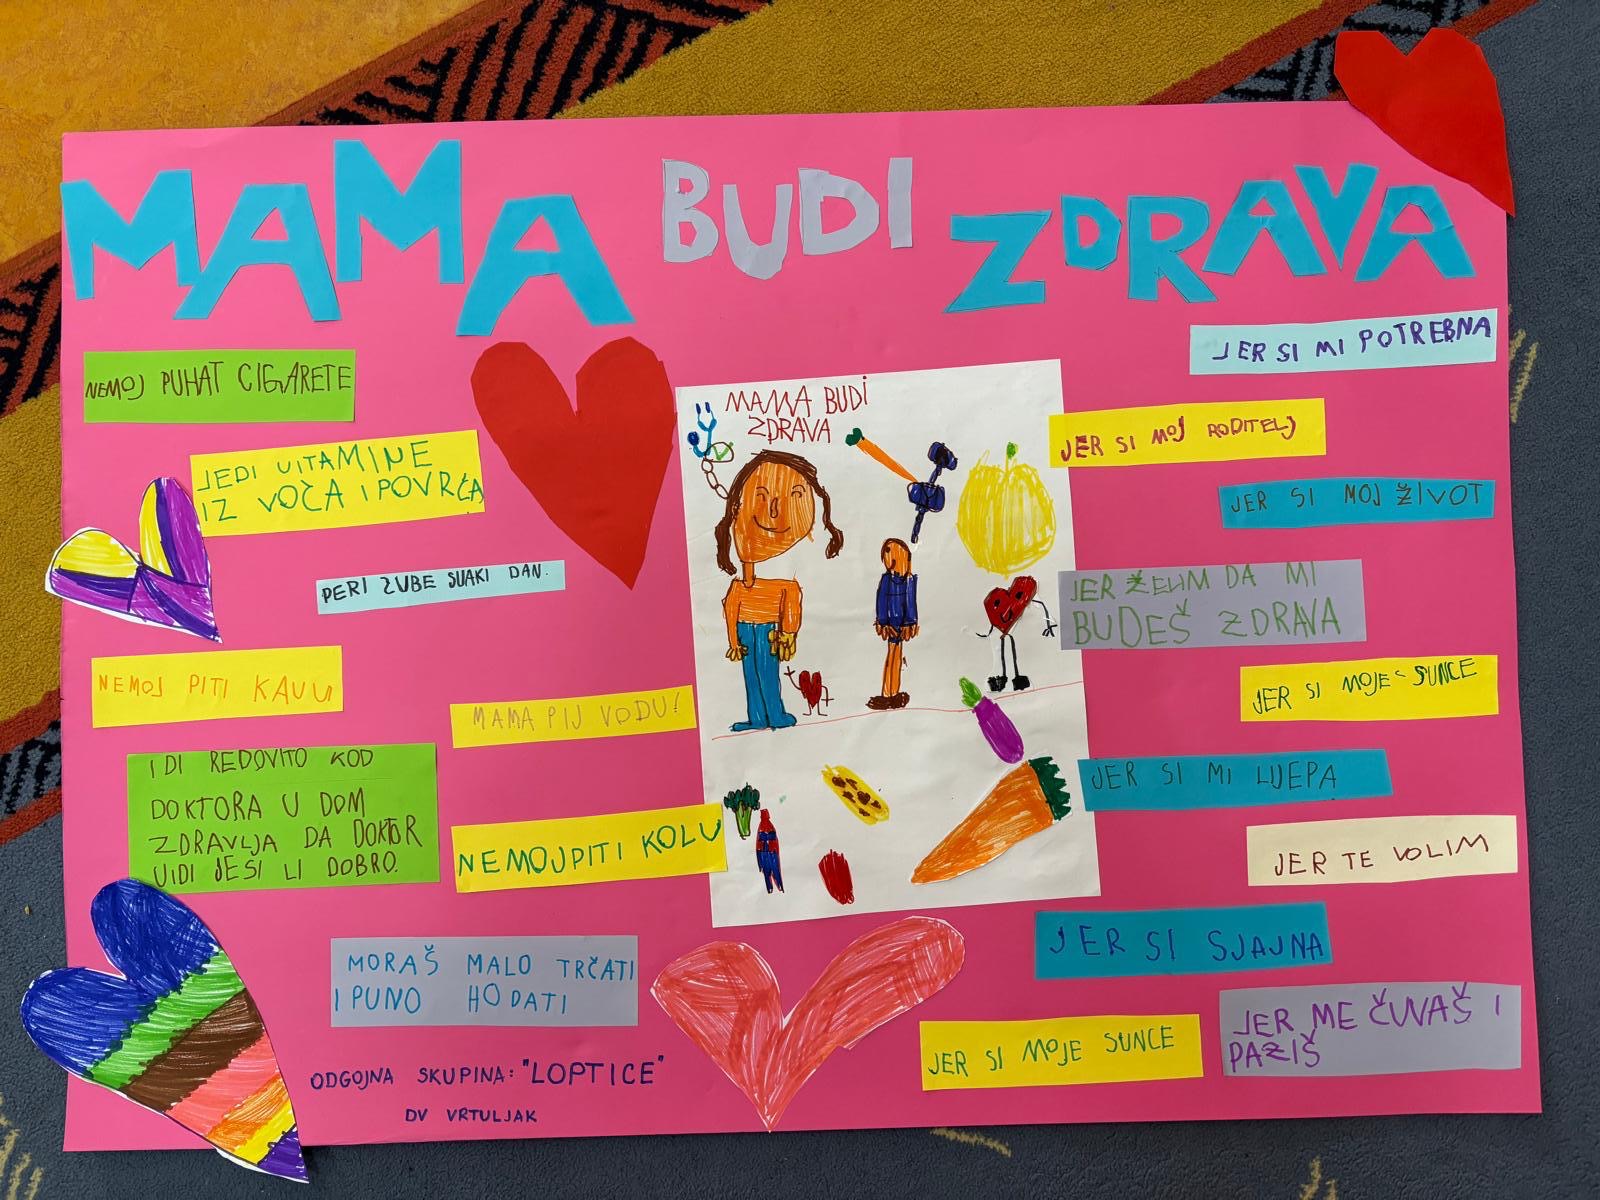 MAMA BUDI ZDRAVA
NEMOJ PUHAT CIGARETE
JEDI VITAMINE
IZ VOĆA I POVRĆA
PERI ZUBE SVAKI DAN.
NEMOJ PITI KAVU
MAMA PIJ VODU!
IDI REDOVITO KOD
DOKTORA U DOM
ZDRAVLJA DA DOKTOR
VIDI JESI LI DOBRO.
NEMOJ PITI KOLU
MORAŠ MALO TRČATI
I PUNO HODATI
ODGOJNA SKUPINA: "LOPTICE"
DV VRTULJAK
MAMA BUDI
ZDRAVA
JER SI MI POTREBNA
JER SI MOJ RODITELJ
JER SI MOJ ŽIVOT
JER ŽELIM DA MI
BUDEŠ ZDRAVA
JER SI MOJE SUNCE
JER SI MI LIJEPA
JER TE VOLIM
JER SI SJAJNA
JER SI MOJE SUNCE
JER ME ČUVAŠ I
PAZIŠ